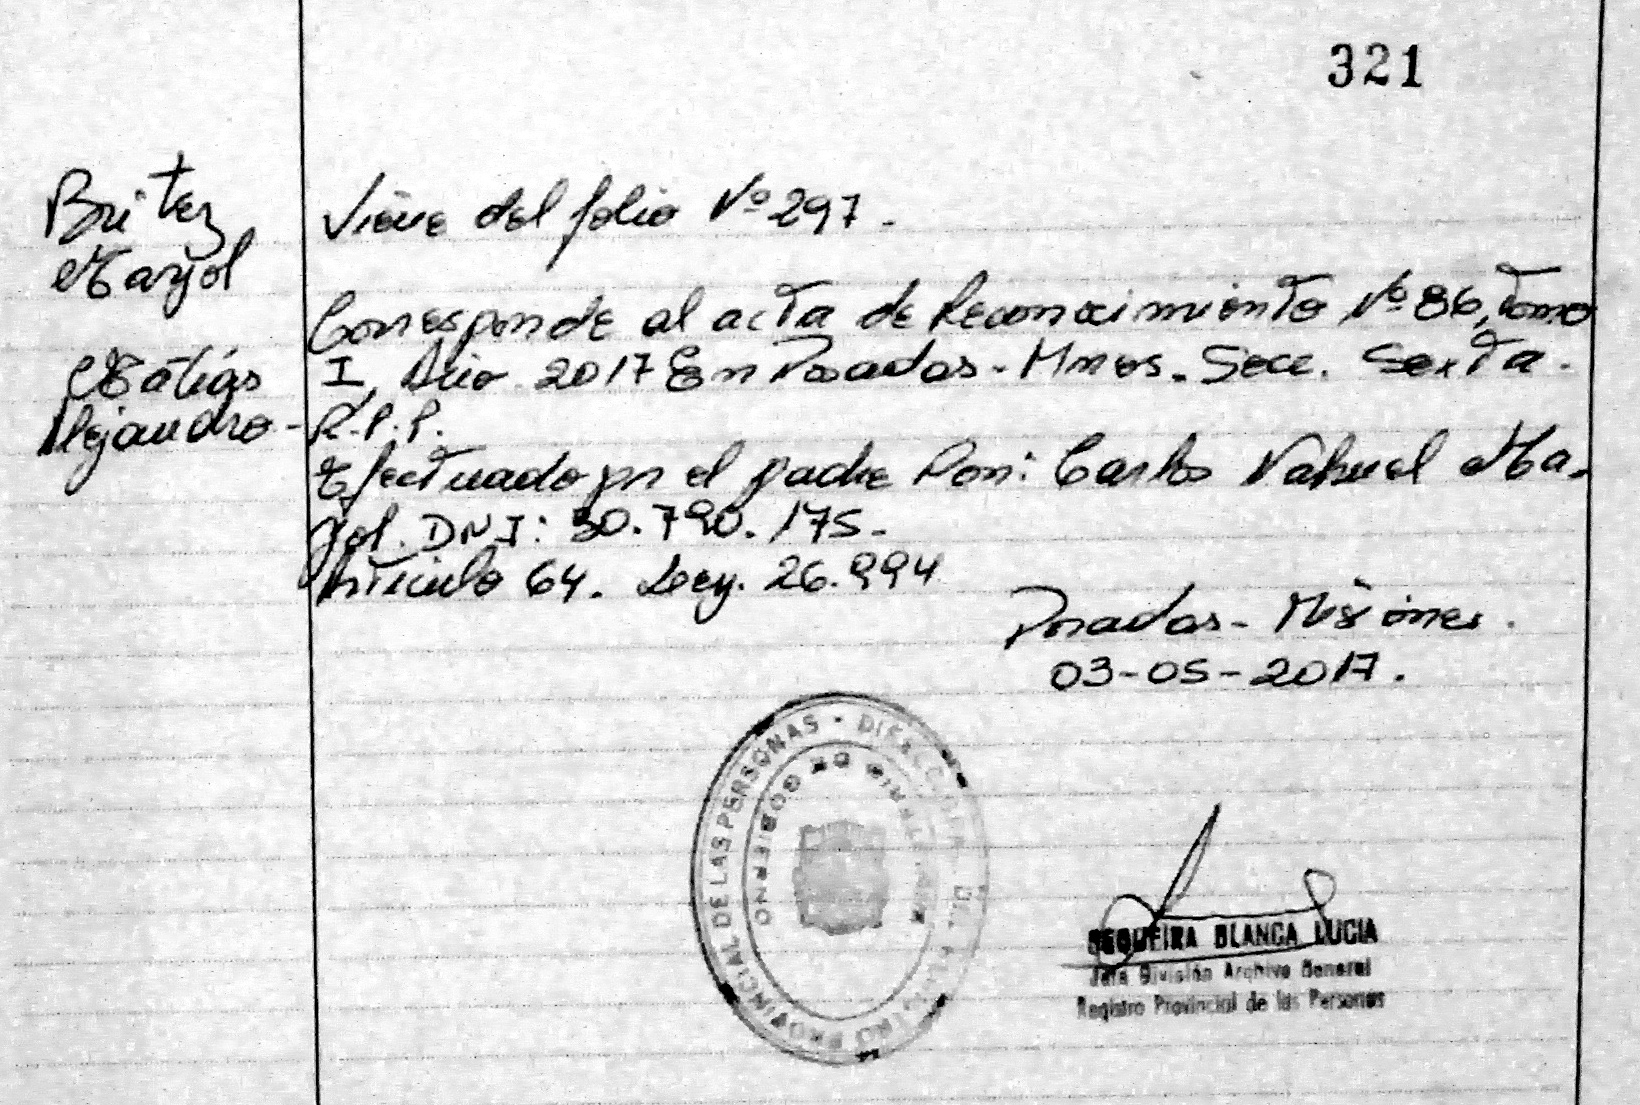 321
Britez
Mayol
Matías
Alejandro -
Viene del folio Nº 297.
Corresponde al acta de Reconocimiento Nº 86, tomo
I, Año 2017 En Posadas - Mnes. Secc. Sexta.
R.P.P.
Efectuado por el padre Don: Carlos Nahuel Ma-
yol. DNI: 30.790.175.
Artículo 64. Ley. 26.994
Posadas - Misiones.
03-05-2017.
PROVINCIAL DE LAS PERSONAS - DIRECCION
DE GOBIERNO
SEQUEIRA BLANCA LUCIA
Jefa División Archivo General
Registro Provincial de las Personas